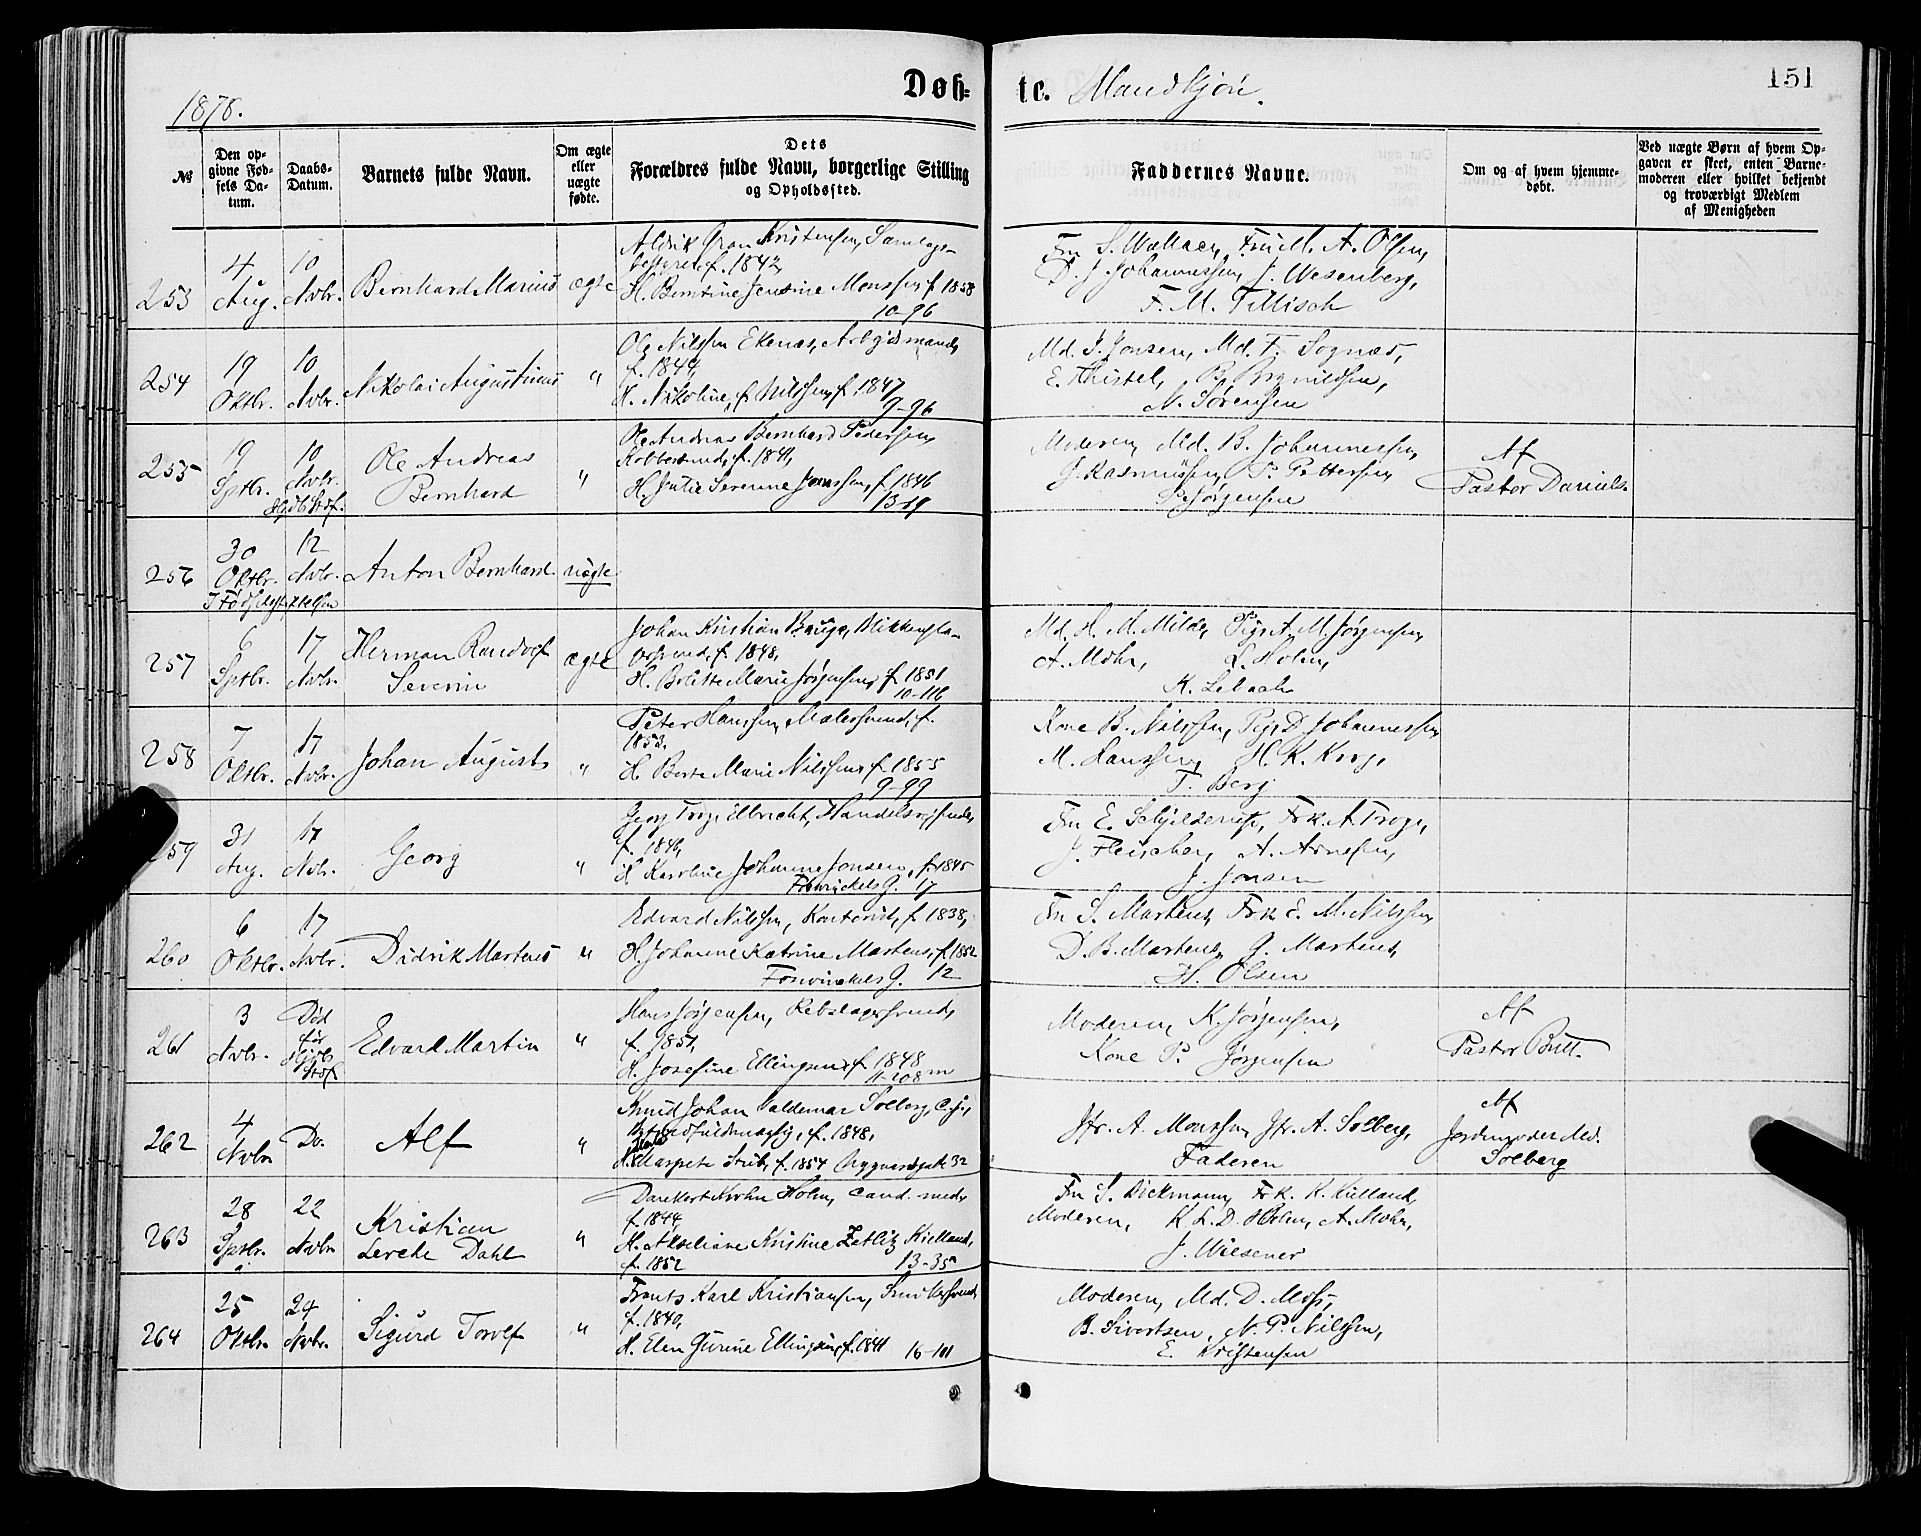 1878.
Døb=
te. Mandkjøn.
151
№
Den op-
givne Fød-
sels Da-
tum.
Daabs-
Datum.
Barnets fulde Navn.
Om ægte
eller
uægte
fødte.
Dets
Forældres fulde Navn, borgerlige Stilling
og Opholdssted.
Faddernes Navne.
Om og af hvem hjemme-
døbt.
Ved uægte Børn af hvem Op-
gaven er skeet, enten Barne-
moderen eller hvilket bekjendt
og troværdigt Medlem
af Menigheden
253
4
Aug.
10
Nvbr.
Bernhard Marius
ægte
Kristensen, Samlags-
bestyrer, f. 1842,
H. Berntine Jensine Monssen, f. 1858
10-96
Fru S. Wallace, Fru M. A. Olsen,
D. J. Johannessen, J. Wesenberg,
F. M. Tillisch
254
19
Oktbr.
10
Nvbr.
Nikolai Augustinus
"
Ole Nilssen Ekenæs, Arbejdsmand,
f. 1844,
H. Nikoline, f. Nilssen, f. 1847
9-96
Md. J. Jonsen, Md. F. Sognæs,
E. Thistel, B. Bognildsen,
N. Sørensen
255
19
Sptbr.
10
Nvbr.
Hjdb. Stdf.
Ole Andreas
Bernhard
"
Ole Andreas Bernhard Pedersen,
f. 1841,
H. Julie Severine Jonssen, f. 1846
13-19
Moderen, Md. B. Johannessen,
J. Rasmussen, P. Pettersen,
P. Jørgensen
Af
Pastor Daniels.
256
30
Oktbr.
12
Nvbr.
I Fødselsstiftelsen
Anton Bernhard
uægte
257
6
Sptbr.
17
Nvbr.
Herman Randolf
Severin
ægte
Johan Kristian Bauge, Blikkensla-
gersvend, f. 1848,
H. Bolette Marie Jørgensen, f. 1851
10-116
Md. H. M. Milde, Pige A. M. Jørgensen,
A. Mohr, L. Holm,
K.
258
7
Oktbr.
17
Nvbr.
Johan August
"
Peter Hanssen, Malersvend, f.
1853,
H. Berte Marie Nilssen, f. 1855
9-99
Kone B. Nilssen, Pige D. Johannessen,
M. Hanssen, H. K. Krog,
T. Berg
259
31
Aug.
17
Nvbr.
Georg
"
Georg Troye Ulbricht, Handelsrejsende,
f. 1846,
H. Karoline Johanne Jonsen, f. 1845
G. 17
Fru E. Schjelderup, Frk. A. Troye,
J. Fleischer, A. Arnesen,
J. Jonsen
260
6
Oktbr.
17
Nvbr.
Didrik Martens
"
Edvard Nilssen, Kontorist, f. 1838,
H. Johanne Katrine Martens, f. 1852
G. 12
Fru S. Martens, Frk. E. M. Nilssen,
D. B. Martens, G. Martens,
H. Olsen
261
3
Nvbr.
Død
før
Hjdb.
Stdf.
Edvard Martin
"
Hans Jørgensen, Rebslagersvend,
f. 1851,
H. Josefine Ellingsen, f. 1848
11-108 m
Moderen, K. Jørgensen,
Kone P. Jørgensen
Af
Pastor Bull.
262
4
Nvbr.
Do.
Alf
"
Knud Johan Valdemar Solberg,
f. 1848,
H. Margrete Stub, f. 1854 Nygaardsgate 32
Jfr. A. Monssen, Jfr. A. Solberg,
Faderen
Af
Jordemoder Md.
Solberg
263
28
Sptbr.
22
Nvbr.
Kristian
Lerche Dahl
"
Dankert Krohn Holm, Cand. med.,
f. 1844,
H. Axeliane Kristine Zetlitz Kielland,
f. 1852 13-35
Fru S. Beckmann, Frk. K. Kielland,
Moderen, K. L. D. Holm, A. Mohr,
J. Wiesener
264
25
Oktbr.
24
Nvbr.
Sigurd Torolf
"
Frants Karl Kristiansen, Snedkersvend,
f. 1840,
H. Elen Gurine Ellingsen, f. 1841 16-101
Moderen, Md. D. Moss,
B. Sivertsen, N. P. Nilssen,
E. Kristensen